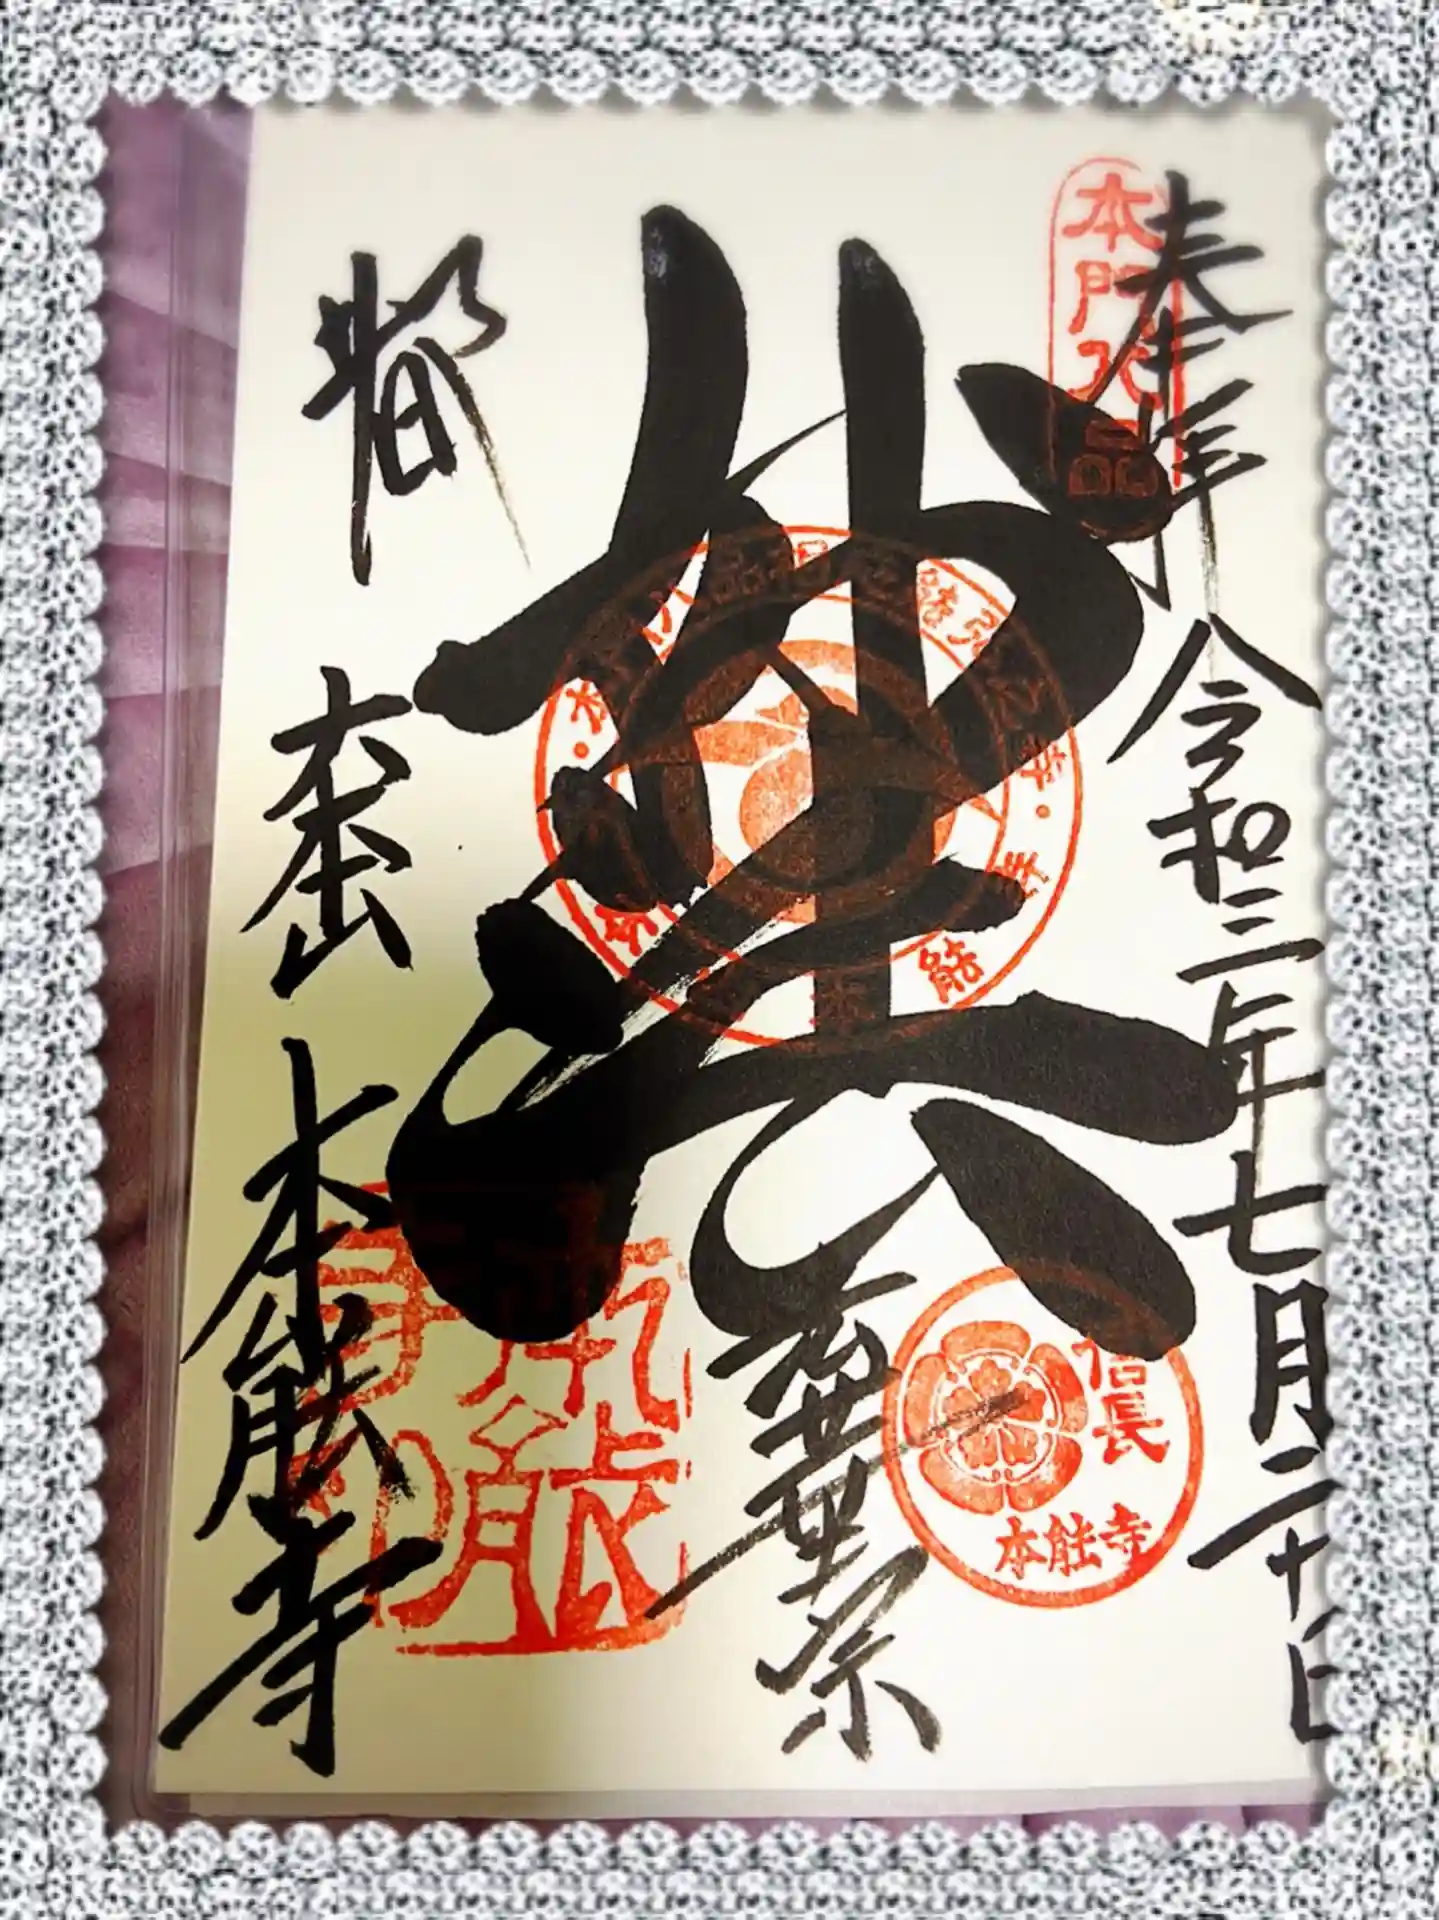 奉拝
令和三年七月二十日
本門八品
妙
共
蓮華祭
信長
本能寺
大本山
本能寺